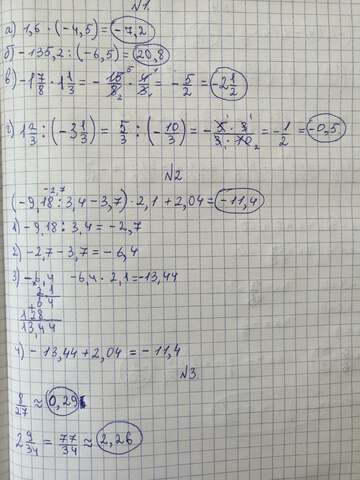 №1.
а) 1,6 · (-4,5) = -7,2
б) -135,2 : (-6,5) = 20,8
в) -1 7/8 · 1 1/3 = - 15/8 · 4/3 = - 5/2 = -2 1/2
г) 1 2/3 : (-3 1/3) = 5/3 : (-10/3) = - 5·3/3·10 = - 1/2 = -0,5
№2
-2,7
(-9,18 : 3,4 - 3,7) · 2,1 + 2,04 = -11,4
1) -9,18 : 3,4 = -2,7
2) -2,7 - 3,7 = -6,4
3) -6,4 -6,4 · 2,1 = -13,44
2 1
6 4
128
13,44
4) -13,44 + 2,04 = -11,4
№3
8/27 ≈ 0,29
2 9/34 = 77/34 ≈ 2,26